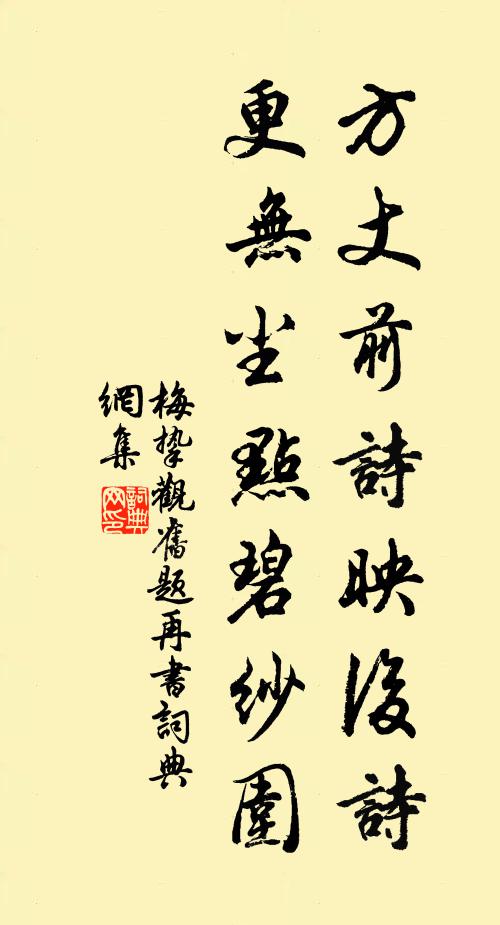 方丈前詩映後詩
更無尘點碧紗圍
梅摯觀舊題再書詞典
網集
詞典
网印